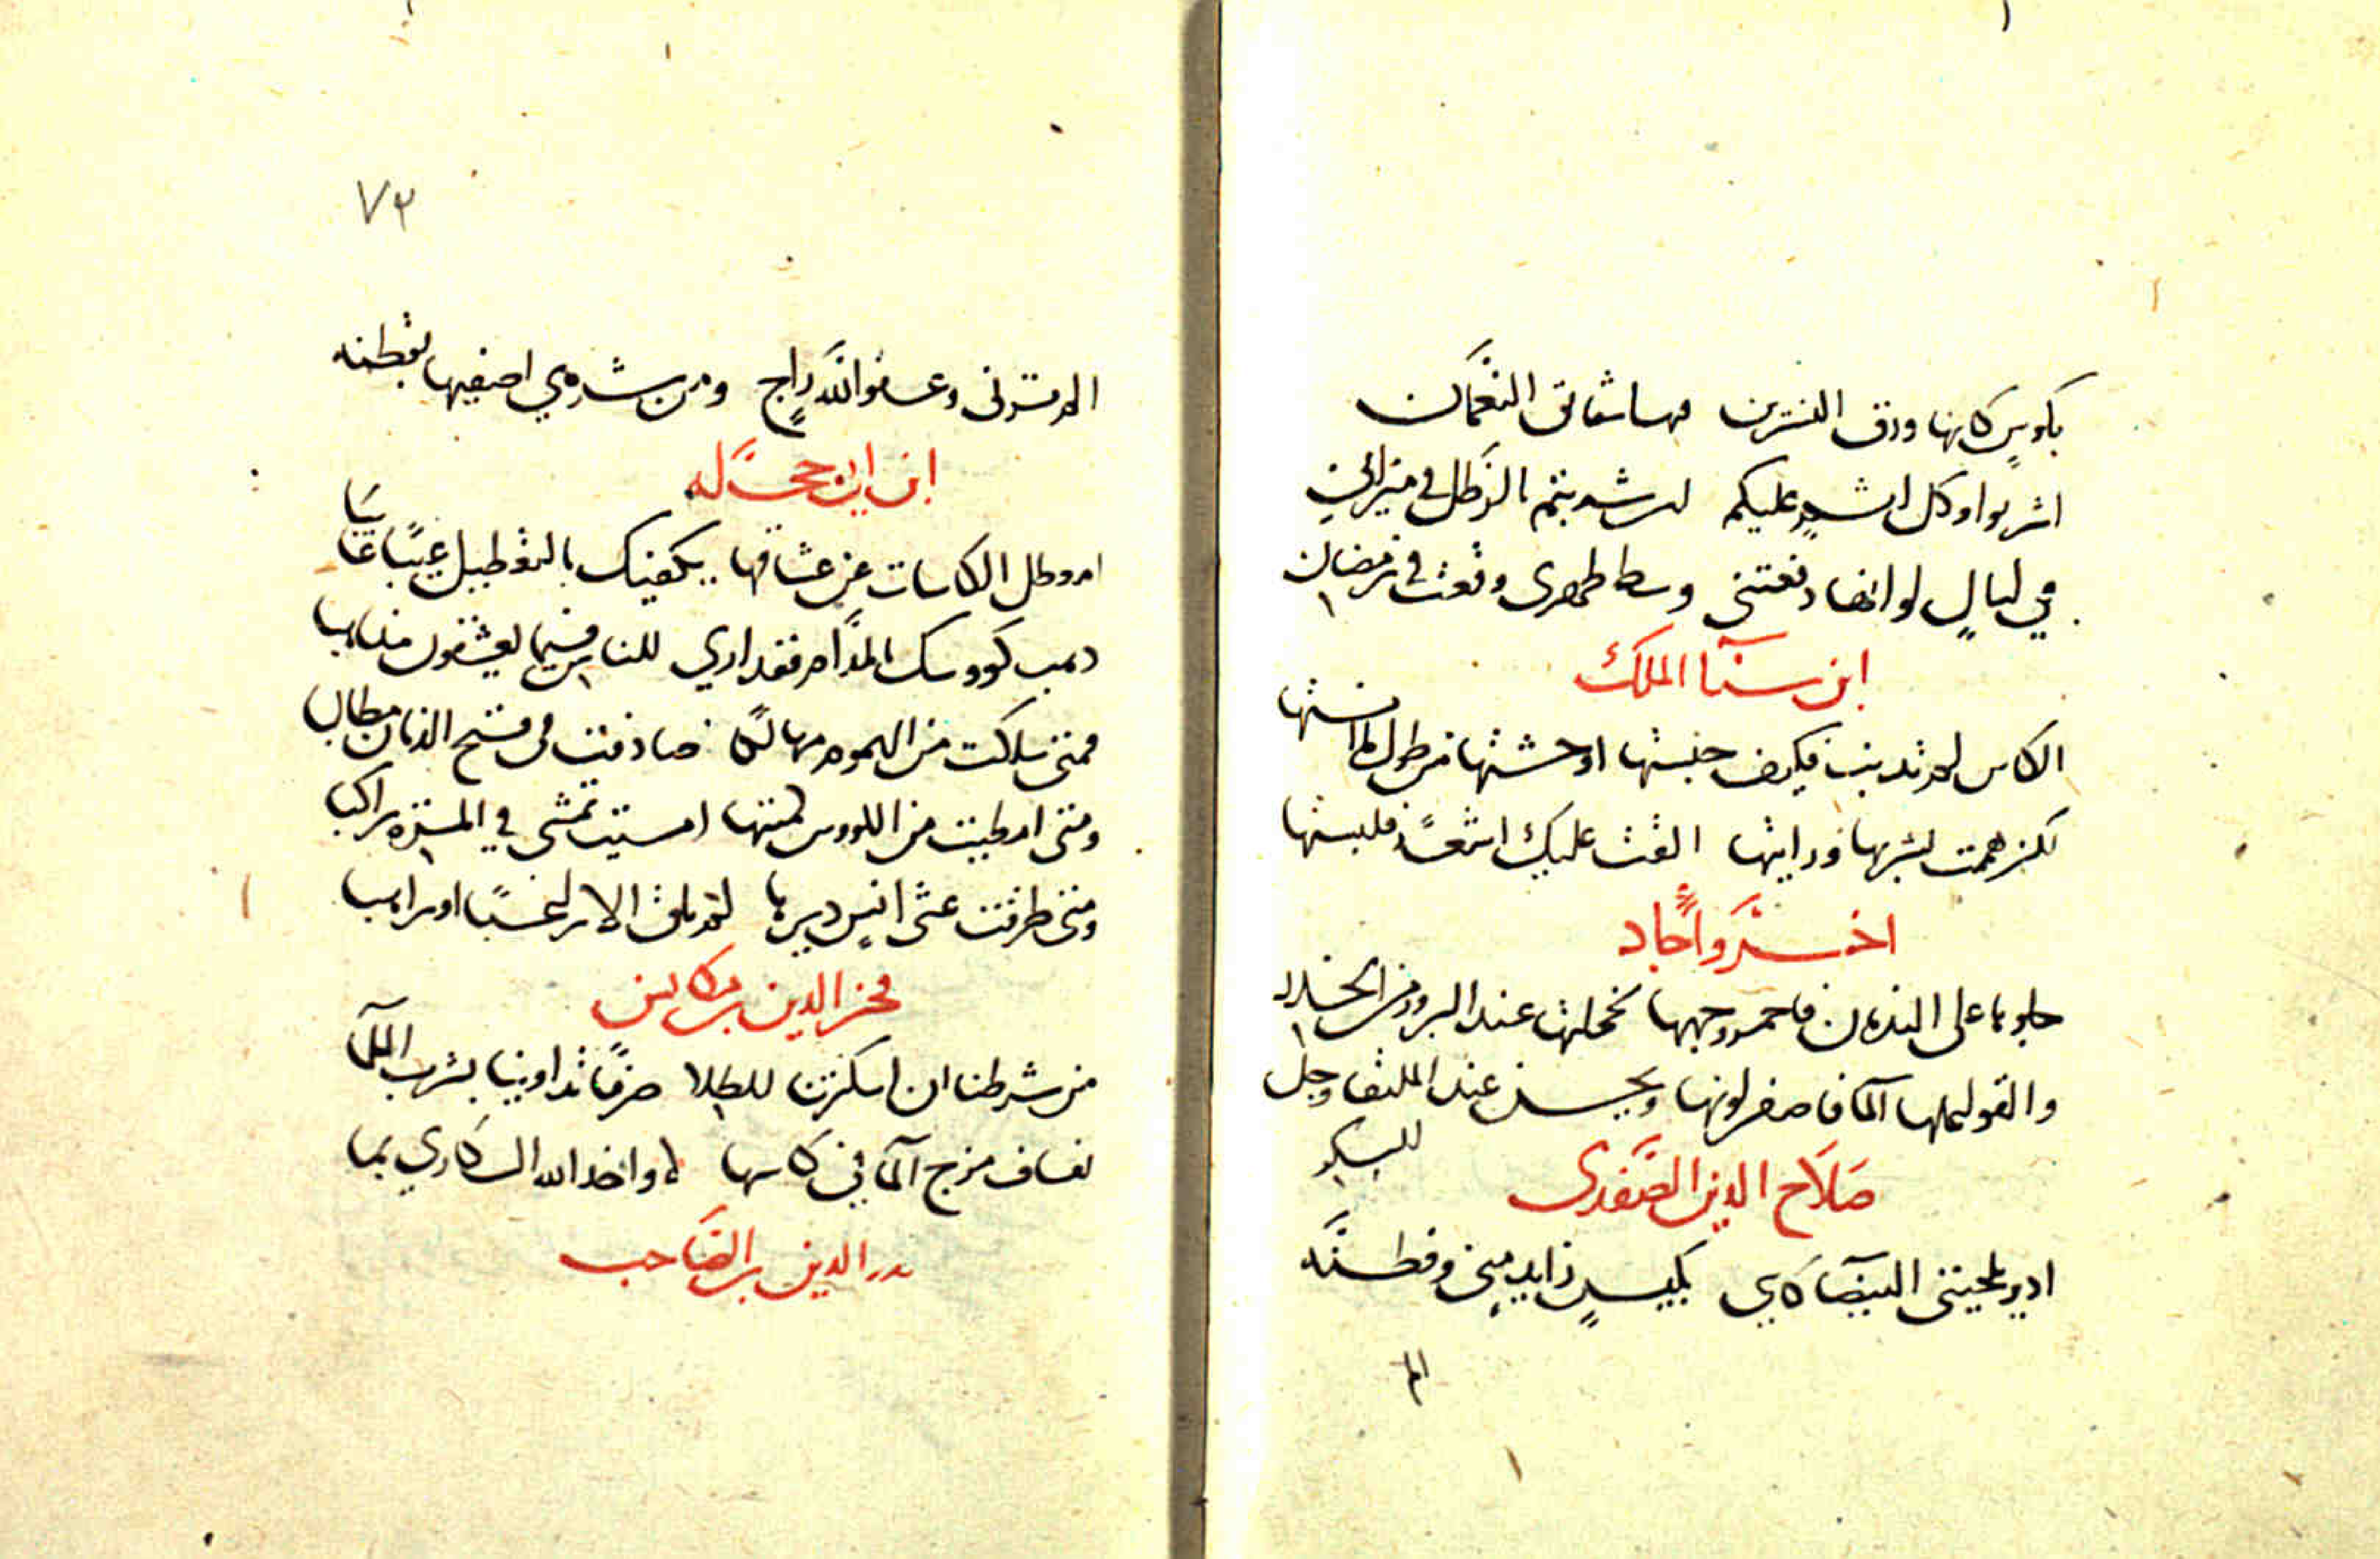 بكوسٍ كانها ورق النسرين فيها شقائق النعمان
اشربوا وكل اثمٍ عليكم ان شربتم بالرطل في ميزاني
في ليالٍ لو انها دفعتني وسط ظهري وقعت في رمضان
ابن سنآ الملك
الكاس لم تذنب فكيف حبستها اوحشتها من طول ما انستها
لكن هممت بشربها فرايتها القت عليك اشعة فلبستها
اخر واجاد
جلوها على الندمان فاحمر وجهها لخجلتها عند البروز من الخدر
والقوا عليها المآ فاصفر لونها ويحسن عند الملتقا وجل
البكر
صَلَاح الدين الصَّفَدى
ادير بلحيتى البيضا كاسي بكيسٍ زايد مني وفطنَّه
الم
٧٣
الم ترنى وعفو اللَّه راجٍ ومن شربي اصفيها بقطنه
ابن ابى حجَله
امر وطل الكاسات عن عشاقها يكفيك بالتعطيل عيبًا عايبا
وهب كووسك المدام فقد اري للناس فيما يعشقون مذاهبا
فمتى سلكت من الهموم مهالكًا صادفت فى فتح الدنان مطالب
ومتى امطيت من الكووس كميتها امسيت تمشى في المسرة راكبا
ومتى طرقت عشى انس ديرها لم تلق الا راغبًا او راهبا
فخر الدين بن مكانس
من شرطنا ان اسكرتنا للطلا صرفًا تداوينا بشرب اللمآ
نعاف مزج المآ في كاسها لا واخذ الله السكاري بما
بدر الدين بن الصَاحب